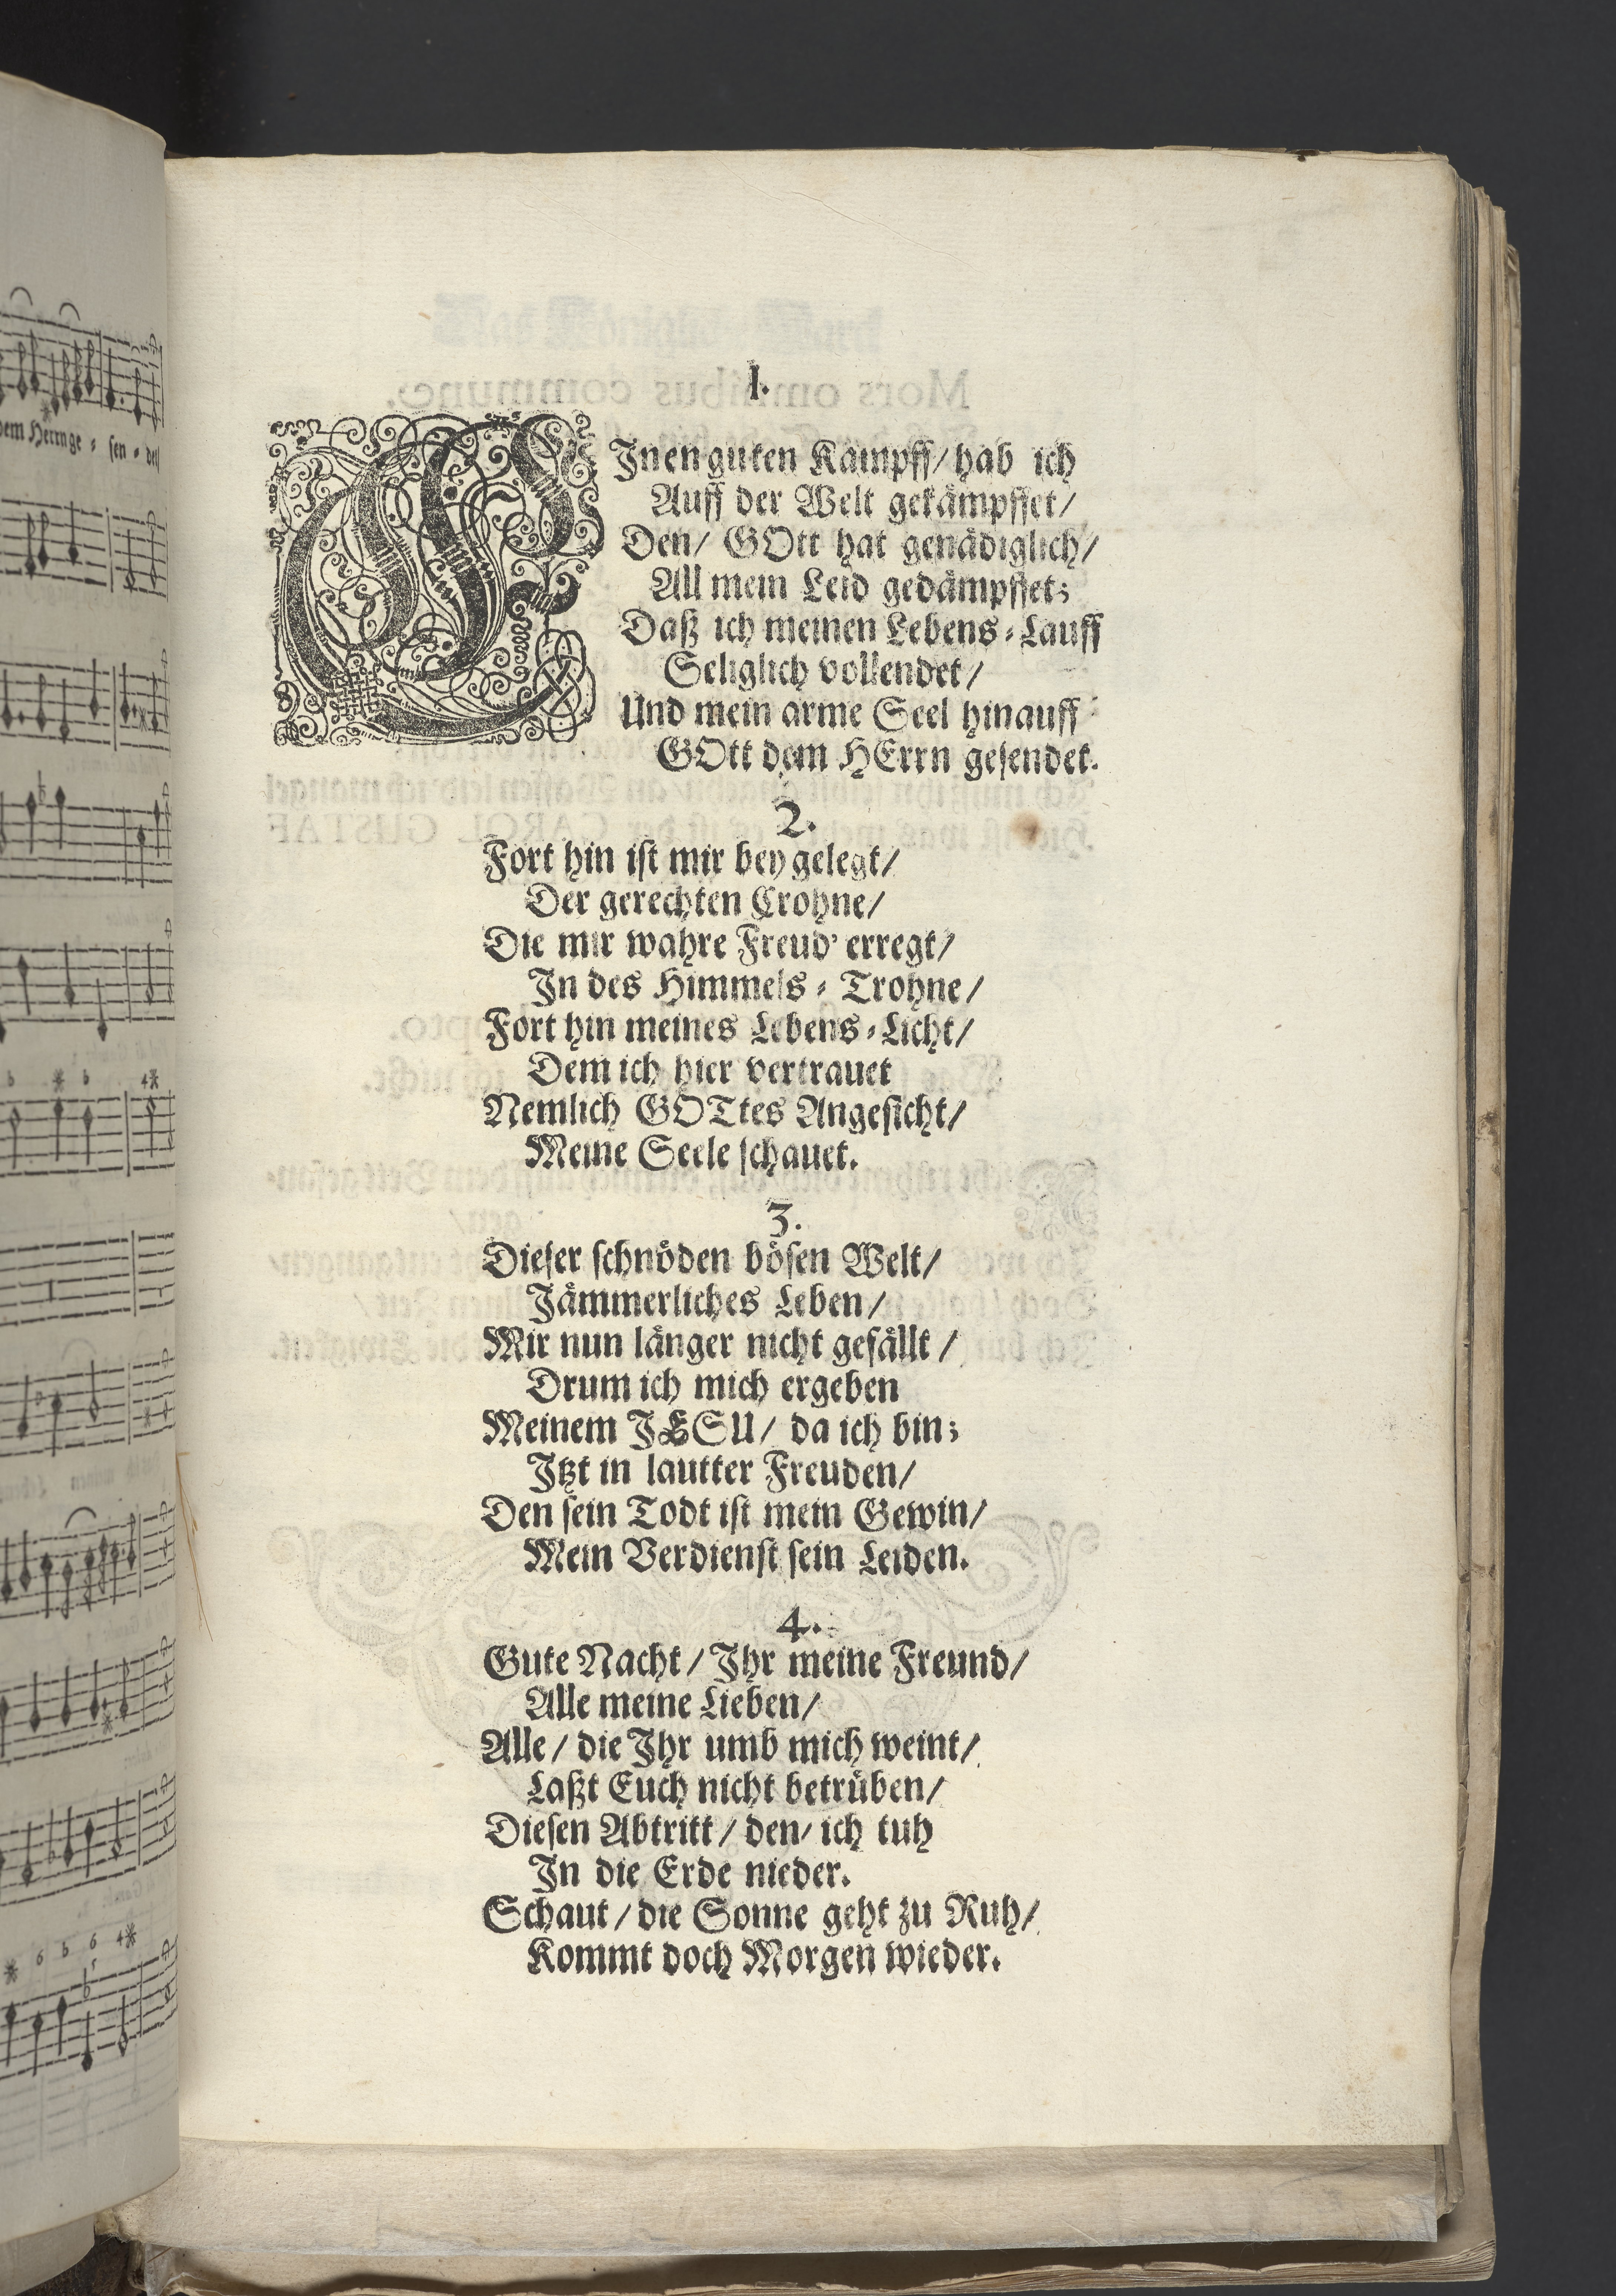 dem Herrn ge⸗sen⸗det
1.
EJnen guten Kampff/ hab ich
Auff der Welt gekämpffet/
Den/ GOtt hat genädiglich/
All mein Leid gedämpffet;
Daß ich meinen Lebens⸗Lauff
Seliglich vollendet/
Und mein arme Seel hinauff
GOtt dem HErrn gesendet.
2.
Fort hin ist mir bey gelegt/
Der gerechten Crohne/
Die mir wahre Freud' erregt/
Jn des Himmels⸗Trohne/
Fort hin meines Lebens⸗Licht/
Dem ich hier vertrauet
Nemlich GOTtes Angesicht/
Meine Seele schauet.
3.
Dieser schnöden bösen Welt/
Jämmerliches Leben/
Mir nun länger nicht gefällt/
Drum ich mich ergeben
Meinem JESU/ da ich bin;
Jtzt in lautter Freuden/
Den sein Todt ist mein Gewin/
Mein Verdienst sein Leiden.
4.
Gute Nacht/ Jhr meine Freund/
Alle meine Lieben/
Alle/ die Jhr umb mich weint/
Laßt Euch nicht betrüben/
Diesen Abtritt/ den/ ich tuh
Jn die Erde nieder.
Schaut/ die Sonne geht zu Ruh/
Kommt doch Morgen wieder.